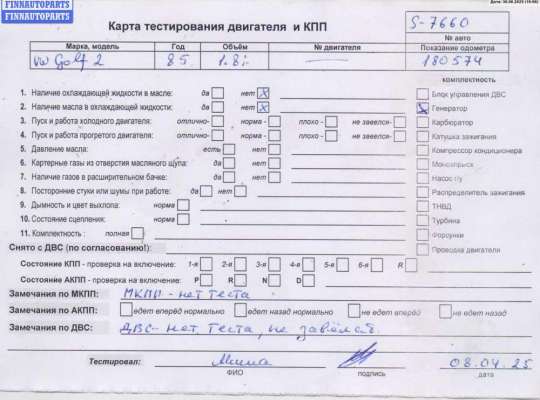 FINNAUTOPARTS
FINNAUTOPARTS
Карта тестирования двигателя и КПП
S-7660
№ авто
Марка, модель Год Объём № двигателя Показание одометра
VW Golf 2 85 1.8i — 180574
комплектность
1. Наличие охлаждающей жидкости в масле: да нет X Блок управления ДВС
2. Наличие масла в охлаждающей жидкости: да нет X X Генератор
3. Пуск и работа холодного двигателя: отлично- норма - плохо - не завелся- Карбюратор
4. Пуск и работа прогретого двигателя: отлично- норма - плохо - не завелся- Катушка зажигания
5. Давление масла: есть нет Компрессор кондиционера
6. Картерные газы из отверстия масляного щупа: да нет Моновпрыск
7. Наличие газов в расширительном бачке: да нет Насос г\у
8. Посторонние стуки или шумы при работе: да нет Распределитель зажигания
9. Дымность и цвет выхлопа: норма ТНВД
10. Состояние сцепления: норма Турбина
11. Комплектность : полная Форсунки
Снято с ДВС (по согласованию!): Проводка двигателя
Состояние КПП - проверка на включение: 1-я 2-я 3-я 4-я 5-я 6-я R
Состояние АКПП - проверка на включение: P R N D
Замечания по МКПП: МКПП - нет теста
Замечания по АКПП: едет вперёд нормально едет назад нормально не едет вперёд не едет назад
Замечания по ДВС: ДВС - нет теста, не завёлся.
Тестировал: 08.04.25
ФИО подпись дата